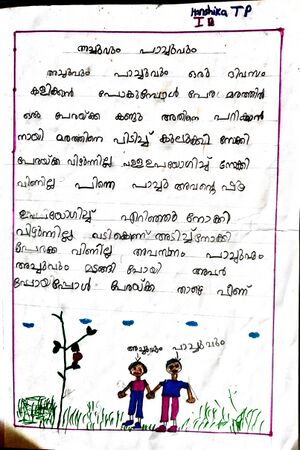 Hanshika T P
I B
അച്ചുവും പാച്ചുവും
അച്ചുവും പാച്ചുവും ഒരു ദിവസം
കളിക്കാൻ പോകുമ്പോൾ പേര മരത്തിൽ
ഒരു പേരയ്ക്ക കണ്ടു അതിനെ പറിക്കാൻ
നായി മരത്തിനെ പിടിച്ച് കുലുക്കി നോക്കി
പേരയ്ക്ക വീഴ്ന്നില്ല ഉപയോഗിച്ച് നോക്കി
വിണില്ല പിന്നെ പാച്ചു അവന്റെ
ഉപയോഗിച്ച് എറിഞ്ഞു നോക്കി
വീഴ്ന്നില്ല വടികൊണ്ട് അടിച്ച് നോക്കി
പേരക്ക വിണില്ല അവസാനം പാച്ചുവും
അച്ചുവും മടങ്ങി പോയി അവർ
പോയപ്പോൾ പേരയ്ക്ക താഴെ വീണ്
അച്ചുവും പാച്ചുവും